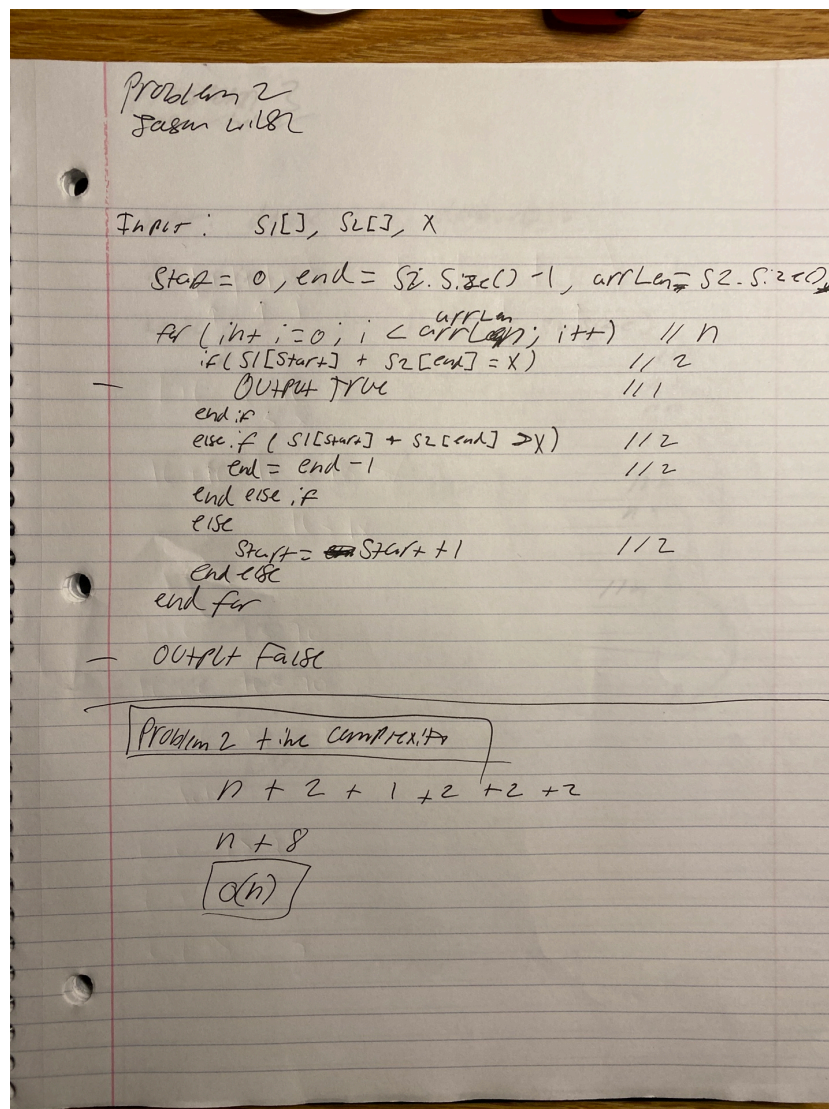 Problem 2
Jason Wilson
Input: S1[], S2[], X
Start = 0, end = S2.Size()-1, arrLen = S2.Size()
arrLen
for (int i=0; i < arrLen; i++) // n
if (S1[Start] + S2[end] = X) // 2
– Output True // 1
end if
else if (S1[Start] + S2[end] > X) // 2
end = end -1 // 2
end else if
else
Start = Start +1 // 2
end else
end for
– Output False
Problem 2 time complexity
n + 2 + 1 +2 +2 +2
n + 8
O(n)